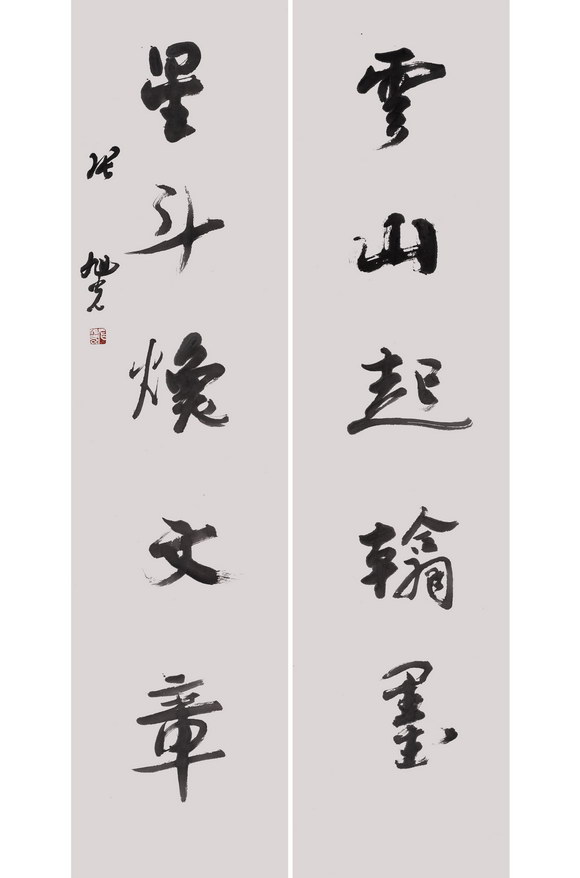 雲山起翰墨
星斗煥文章
張旭光